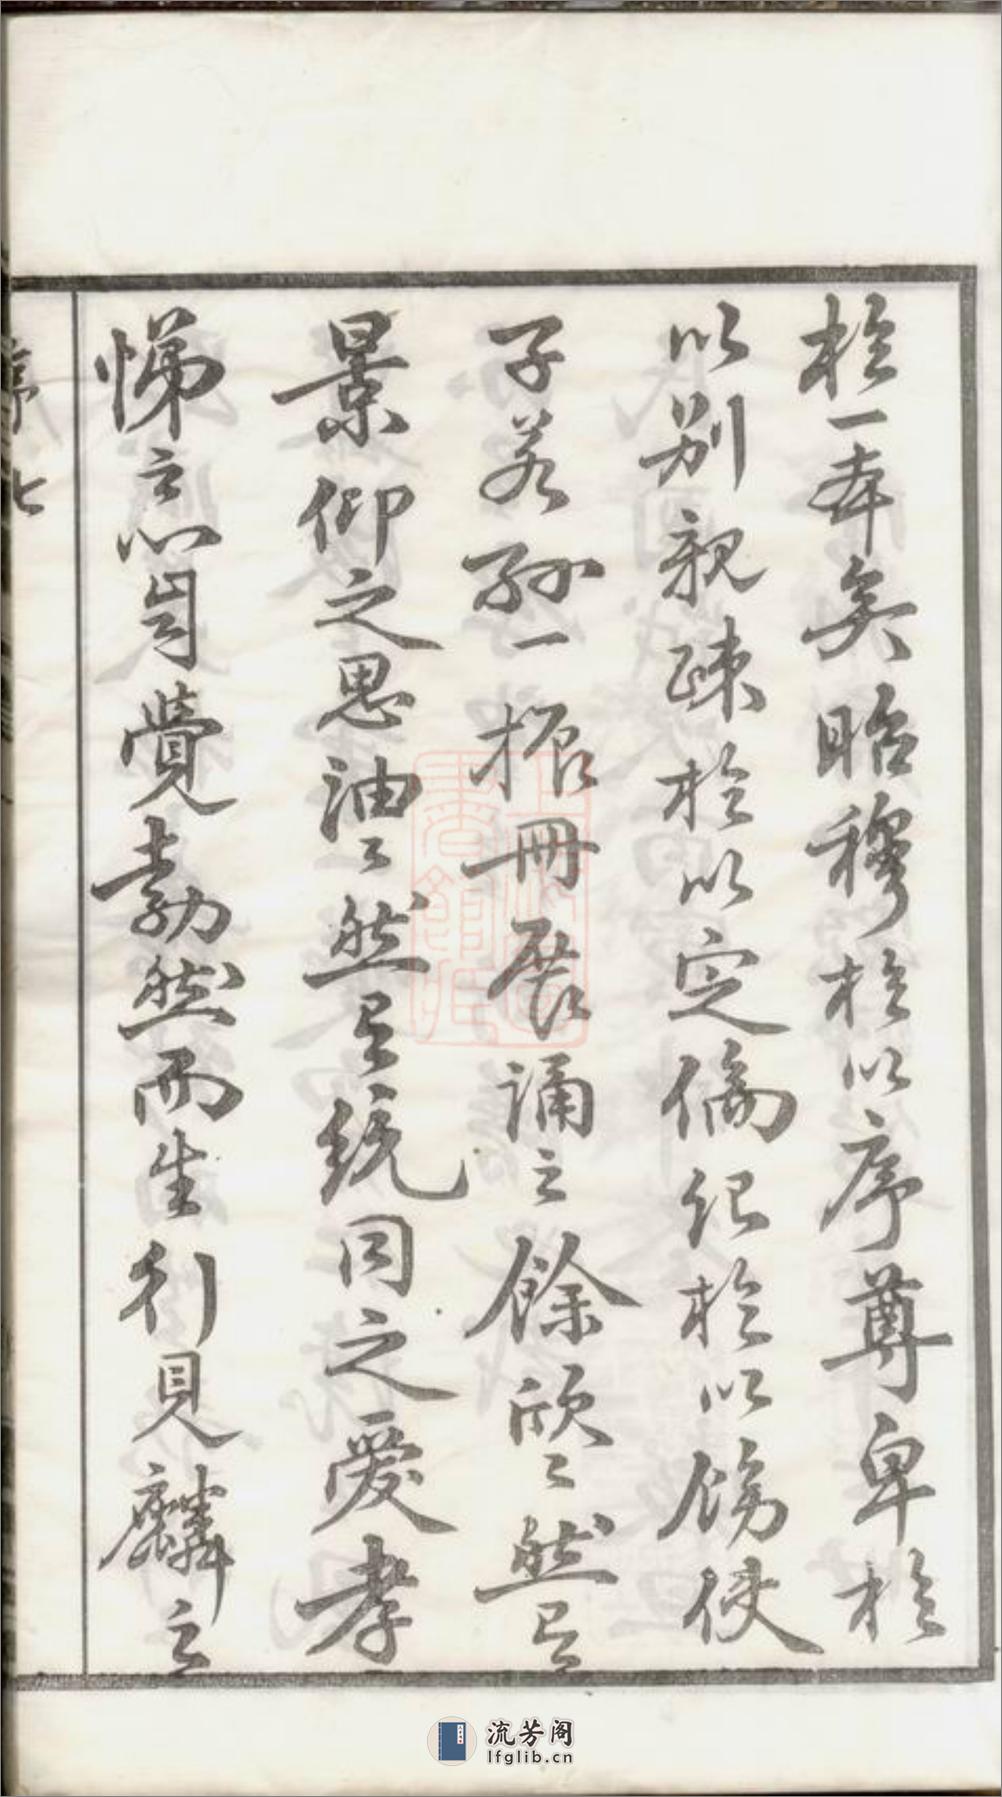 於一本矣昭穆於以序尊卑於
以別親疎於以定倫紀於以飭使
子若孫一振冊展誦之餘欣欣然有
景仰之思油油然有統同之愛孝
悌之心間覺勃然而生行見麟之
序 七
流芳阁
lfglib.cn